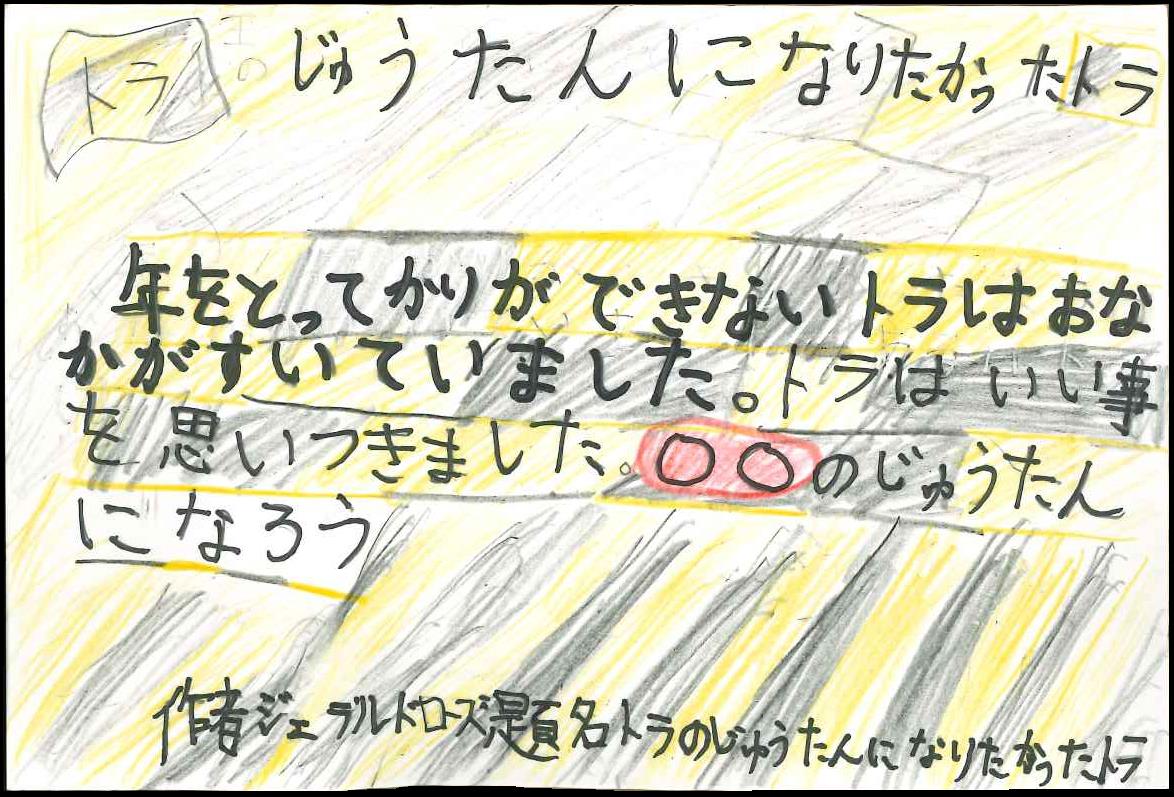 トラのじゅうたんになりたかったトラ
年をとってかりができないトラはおな
かがすいていました。トラはいい事
を思いつきました。〇〇のじゅうたん
になろう
作者ジェラルドローズ題名トラのじゅうたんになりたかったトラ